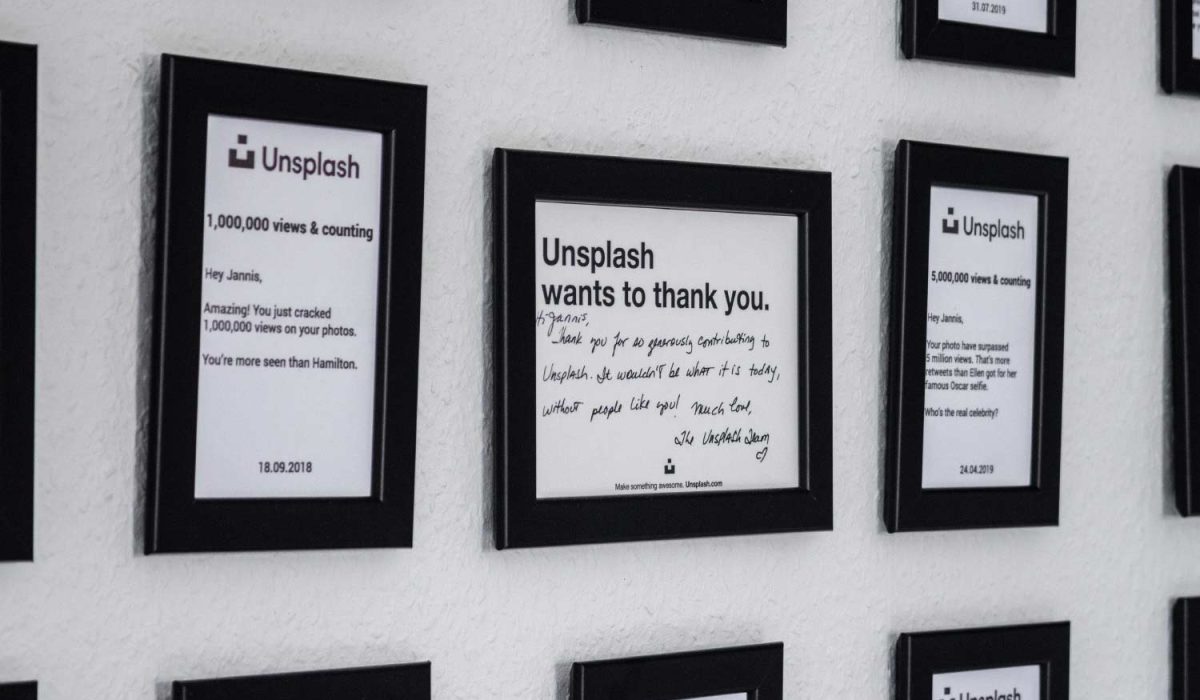 31.07.2019
Unsplash
1,000,000 views & counting
Hey Jannis,
Amazing! You just cracked
1,000,000 views on your photos.
You're more seen than Hamilton.
18.09.2018
Unsplash
wants to thank you.
Hi Jannis,
Thank you for so generously contributing to
Unsplash. It wouldn't be what it is today,
without people like you! Much love,
The Unsplash Team
Make something awesome. Unsplash.com
Unsplash
5,000,000 views & counting
Hey Jannis,
Your photo have surpassed
5 million views. That's more
retweets than Ellen got for her
famous Oscar selfie.
Who's the real celebrity?
24.04.2019
Unsplash